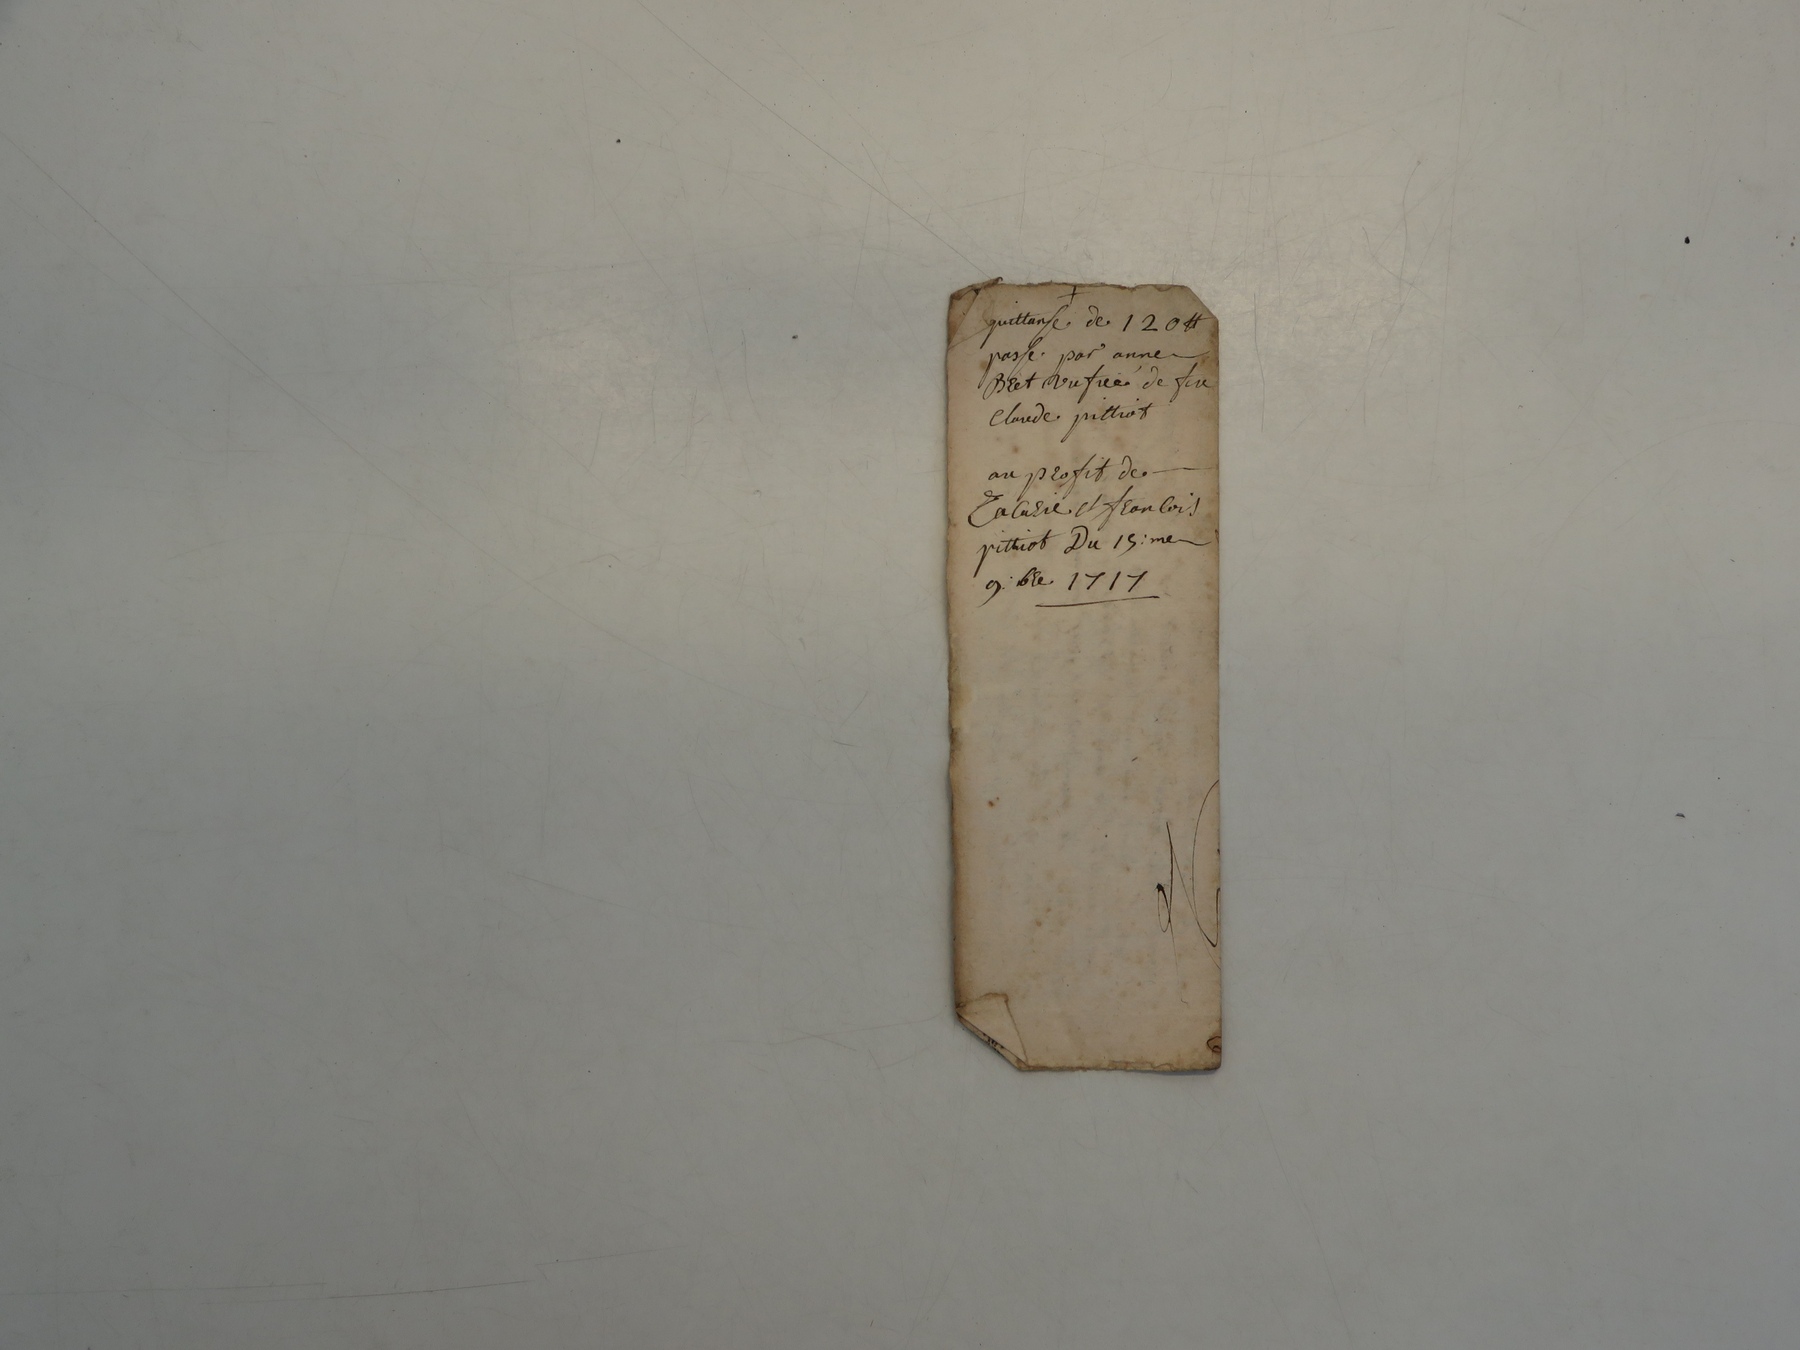 +
quittanse de 120 ₶
passe par anne
Bret vufieé de feu
Claude pittiot
au profit de
Zacarie et francois
pittiot Du 15:me
9:bre 1717